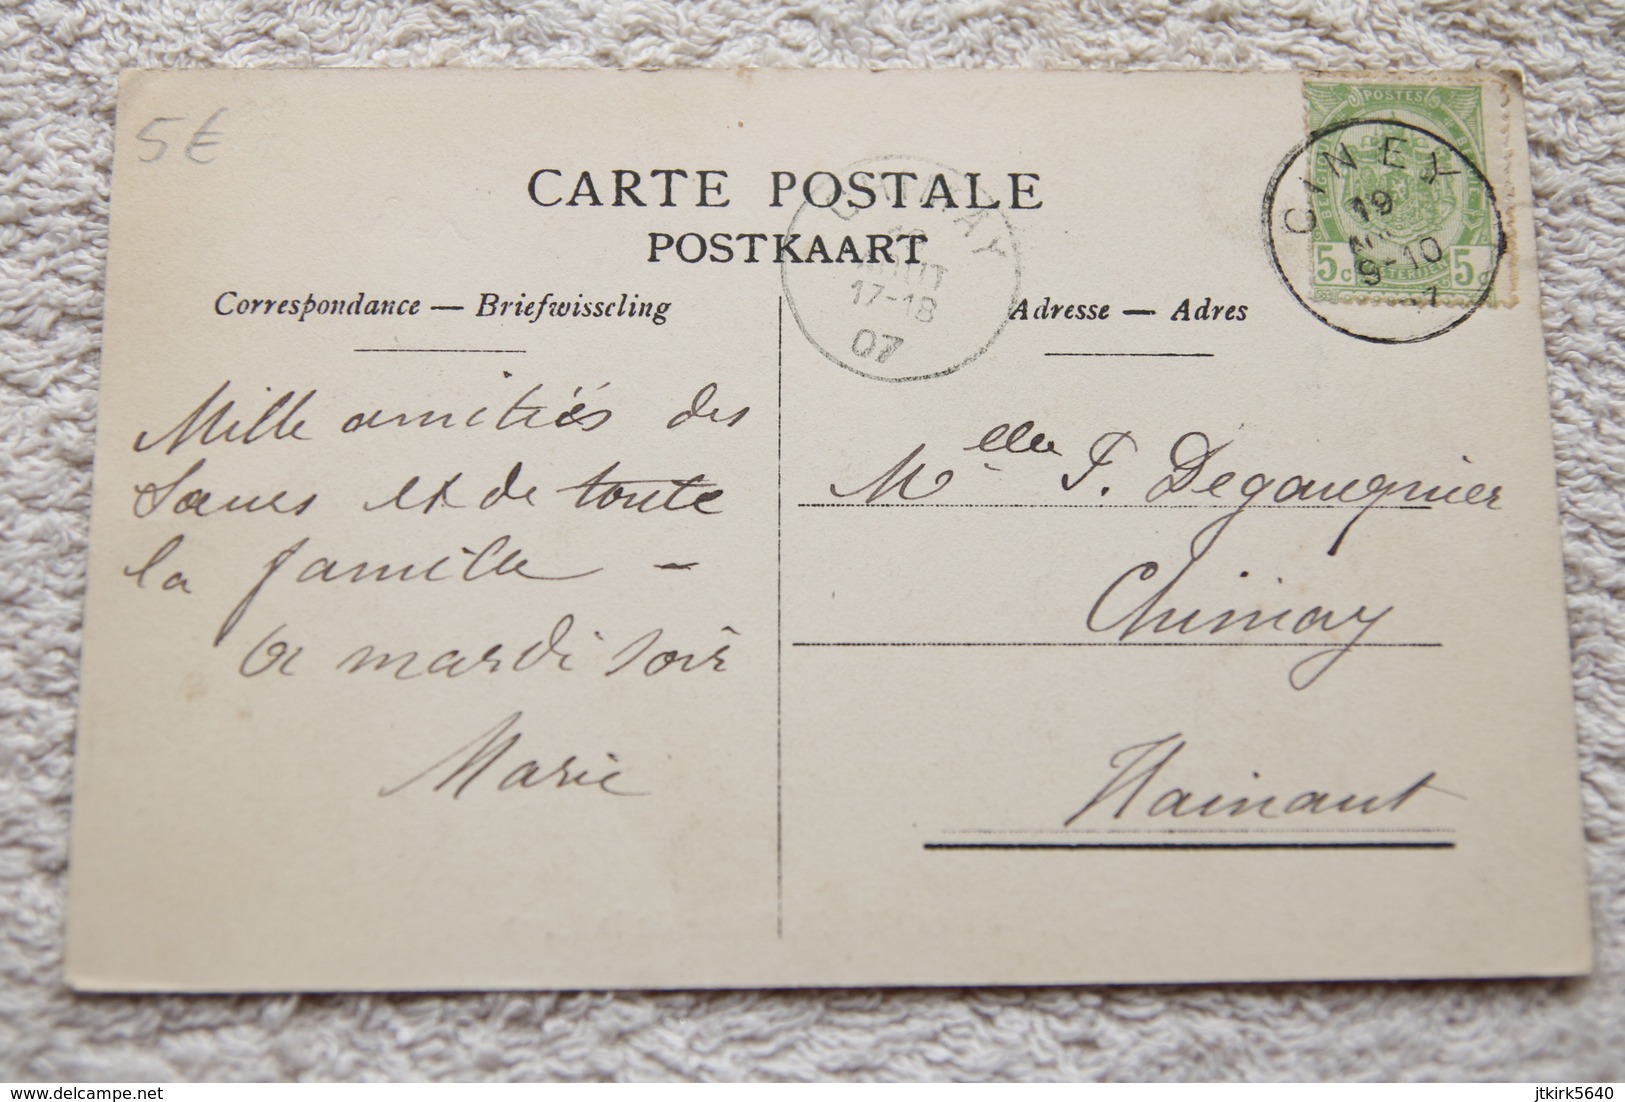 5€
CARTE POSTALE
POSTKAART
Correspondance — Briefwisseling
Adresse — Adres
POSTES
5c 5c
CINEY
19
9-10
17-18
07
Mille amitiés des
Sœurs et de toute
la famille –
A mardi soir
Marie
Melle F. Degauquier
Chimay
Hainaut
www.delcampe.net
jtkirk5640